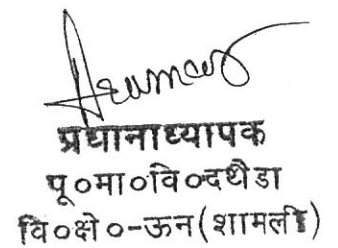 प्रधानाध्यापक
पू०मा०वि०दथैडा
वि०क्षे०-ऊन(शामली)